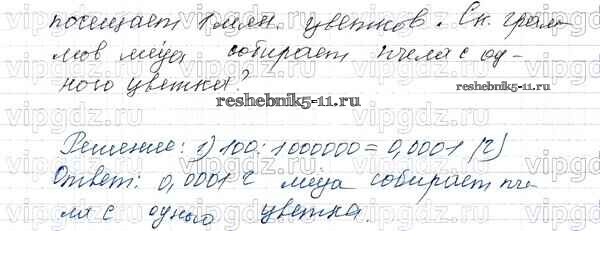 посещает 1 млн. цветков. Ск. грам-
мов мёда собирает пчела с од-
ного цветка?
reshebnik5-11.ru
reshebnik5-11.ru
Решение: 1) 100 : 1000000 = 0,0001 (г)
Ответ: 0,0001 г меда собирает пче-
ла с одного цветка.
vipgdz.ru